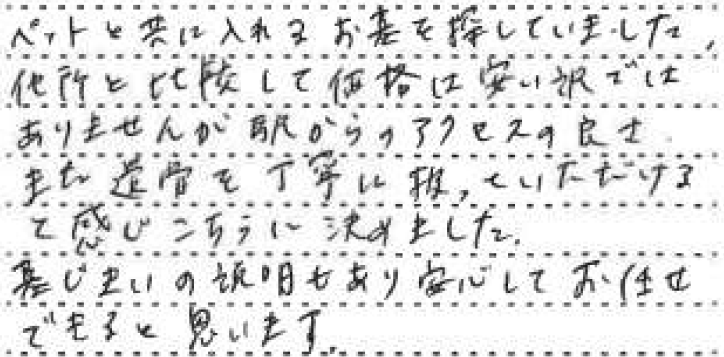 ペットと共に入れるお墓を探していました、
他所と比較して価格は安い訳では
ありませんが駅からのアクセスの良さ
また遺骨を丁寧に扱っていただける
と感じこちらに決めました。
墓じまいの説明もあり安心してお任せ
できると思います。